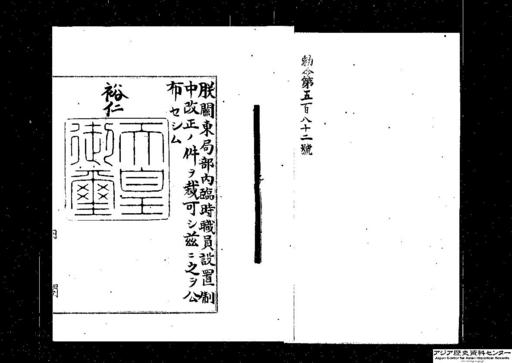 勅令第五百八十二號
朕關東局部內臨時職員設置制
中改正ノ件ヲ裁可シ茲ニ之ヲ公
布セシム
裕仁
天皇
御璽
内
閣
アジア歴史資料センター
Japan Center for Asian Historical Records